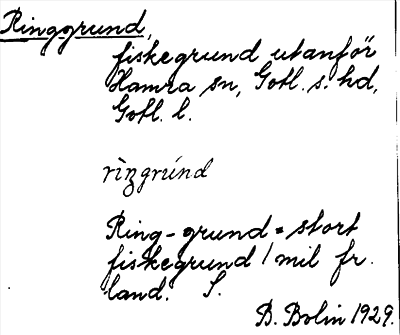 Ringgrund,
fiskegrund utanför
Hamra sn, Gotl. s. hd,
Gotl. l.
rìŋgrúnd
Ring-grund = stort
fiskegrund 1 mil fr.
land. S.
B. Bolin 1929.